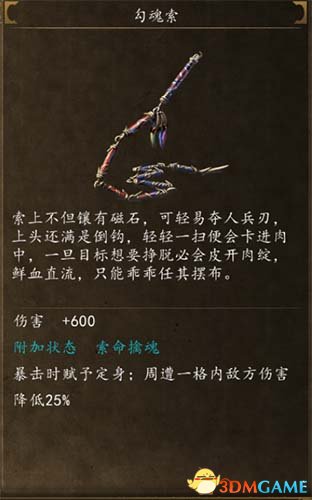 勾魂索
索上不但镶有磁石，可轻易夺人兵刃，
上头还满是倒钩，轻轻一扫便会卡进肉
中，一旦目标想要挣脱必会皮开肉绽，
鲜血直流，只能乖乖任其摆布。
伤害 +600
附加状态 索命擒魂
暴击时赋予定身；周遭一格内敌方伤害
降低25%
3DMGAME